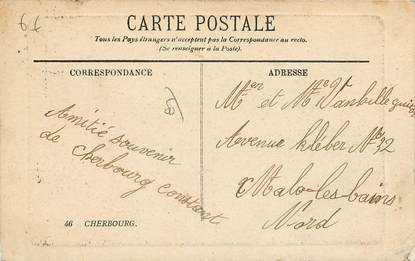 CARTE POSTALE
Tous les Pays étrangers n'acceptent pas la Correspondance au recto.
(Se renseigner à la Poste).
CORRESPONDANCE
Amitié souvenir
de Cherbourg constant
46 CHERBOURG.
ADRESSE
Mer et Me
Avenue Kléber No 32
Malo-les-bains
Nord